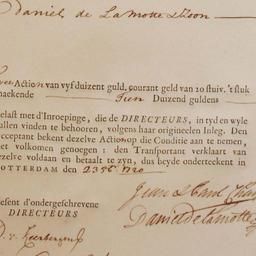 Daniel de la Motte & Zoon
twee Action van vyf duizent guld. courant geld van 20 stuiv. 't stuk
maekende Tien Duzend guldens
belast met d'Inroepinge, die de DIRECTEURS, in tyd en wyle
zullen vinden te behooren, volgens haar origineelen Inleg. Den
Acceptant bekent dezelve Actien op die Conditie aan te nemen,
met volkomen genoegen: den Transportant verklaart van
dezelve voldaan en betaalt te zyn, dus beyde onderteekent in
ROTTERDAM den 1720
Present d'ondergeschrevene
DIRECTEURS
Jean &
Daniel de la Motte